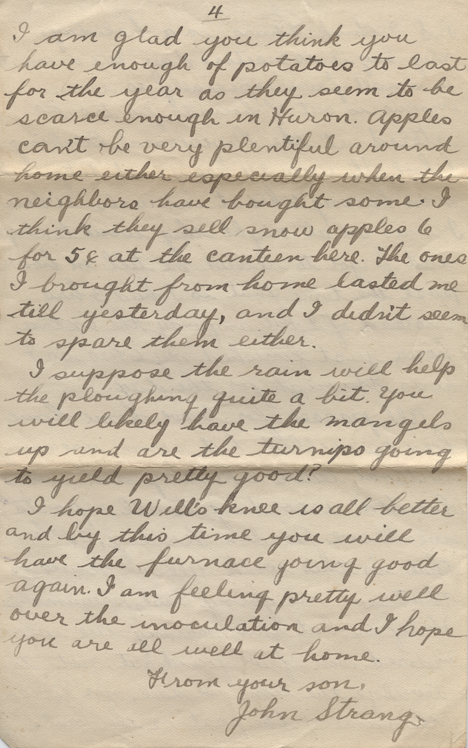 4
I am glad you think you
have enough of potatoes to last
for the year as they seem to be
scarce enough in Huron. Apples
can't be very plentiful around
home either especially when the
neighbors have bought some. I
think they sell snow apples 6
for 5¢ at the canteen here. The ones
I brought from home lasted me
till yesterday, and I didn't seem
to spare them either.
I suppose the rain will help
the ploughing quite a bit. You
will likely have the mangels
up and are the turnips going
to yield pretty good?
I hope Will's knee is all better
and by this time you will
have the furnace going good
again. I am feeling pretty well
over the inoculation and I hope
you are all well at home.
From your son,
John Strang.